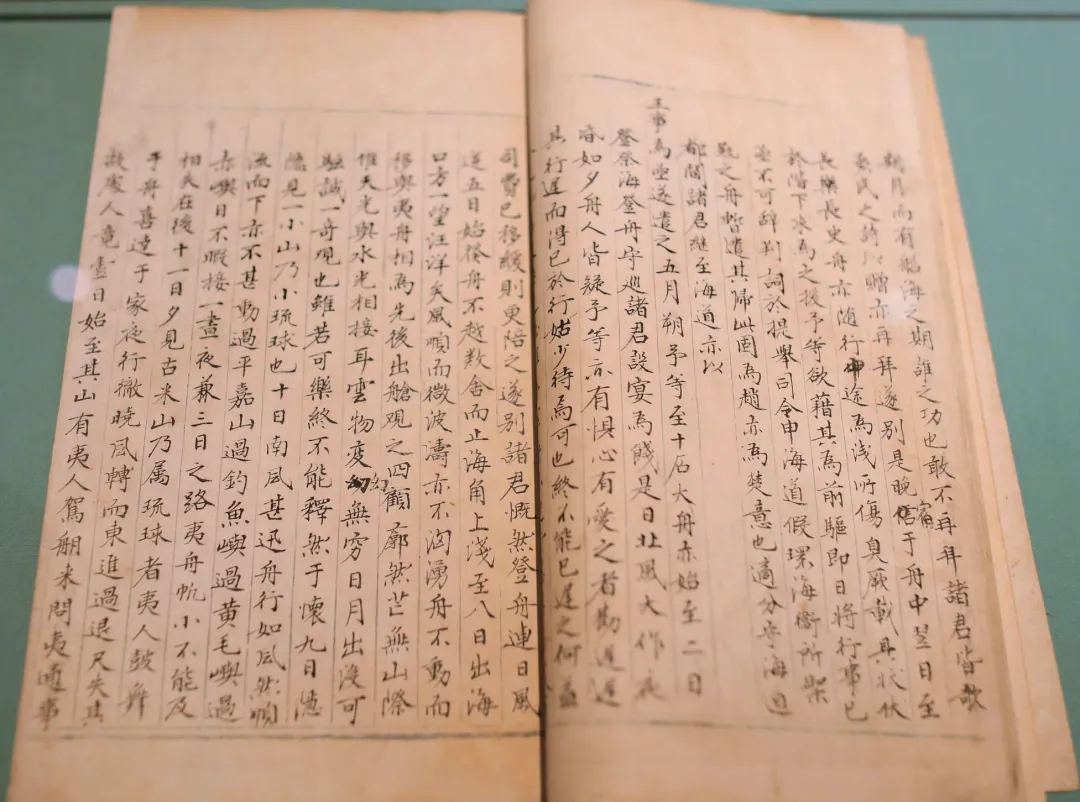 朝月而有航海之期誰之功也敢不再拜諸君皆歌
烝民之詩以贈亦再拜遂別是晚宿于舟中翌日至
長樂長史舟亦随行中途為浅所傷臭厥載具狀伏
於階下求為之援予等欲藉其為前驅即日將行事已
至不可辞判詞於提舉司令申海道假環海衛所架
敗之舟暫遣其歸此固為趙亦為楚意也適分守海道
都閫諸君継至海道亦以
王事為亟遂遣之五月朔予等至十店大舟亦始至二日
登祭海登舟守巡諸君設宴為餞是日北風大作夜
昏如夕舟人皆疑予等亦有惧心有愛之者勸遲遲
其行遲而得已於行姑少待焉可也終不能已遲之何益
司費已移緩則更陪之遂別諸君慨然登舟連日風
逆五日始發舟不越数舍而止海角上浅至八日出海
口方一望汪洋矣風順而微波濤亦不洶湧舟不動而
移與夷舟相為先後出艙觀之四顧廓然茫無山際
惟天光與水光相接耳雲物変幻無窮日月出沒可
駭誠一奇觀也雖若可樂終不能釋然于懷九日隱
隱見一小山乃小琉球也十日南風甚迅舟行如风然順
流而下亦不甚動過平嘉山過釣魚嶼過黄毛嶼過
赤嶼目不暇接一晝夜兼三日之路夷舟帆小不能及
相失在後十一日夕見古米山乃属琉球者夷人鼓舞
于舟喜達于家夜行徹曉風轉而東進過退尺失其
故處人竟一日始至其山有夷人駕舟来問夷通事